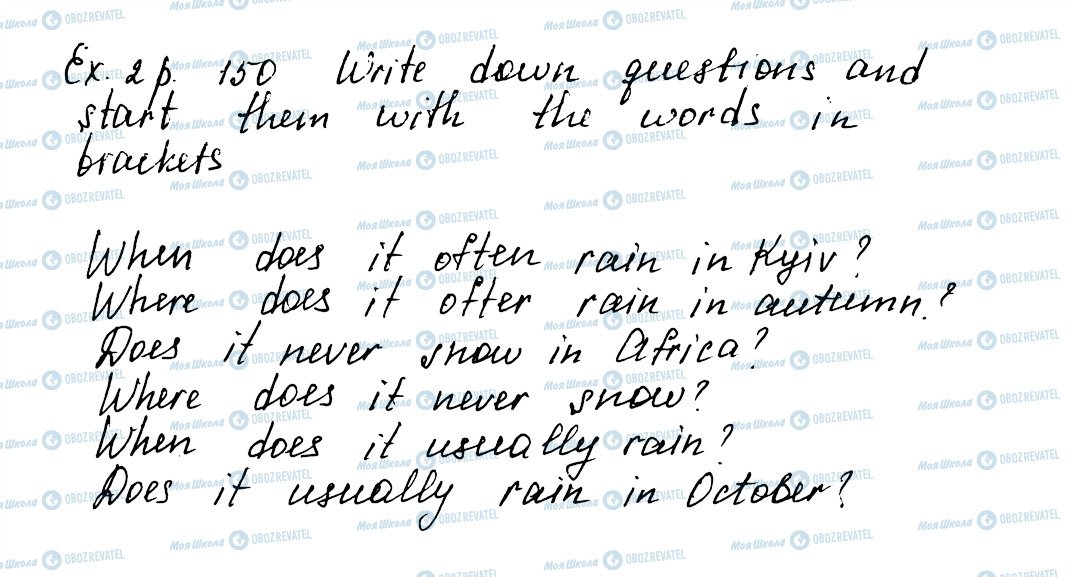 Ex. 2 p. 150 Write down questions and
start them with the words in
brackets
When does it often rain in Kyiv?
Where does it ofter rain in autumn?
Does it never snow in Africa?
Where does it never snow?
When does it usually rain?
Does it usually rain in October?